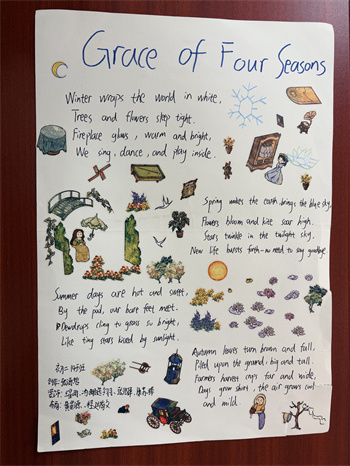 Grace of Four Seasons
Winter wraps the world in white,
Trees and flowers sleep tight.
Fireplace glows, warm and bright,
We sing, dance, and play inside.
Spring makes the earth, brings the blue sky,
Flowers bloom and kite soar high.
Stars twinkle in the twilight sky.
New life bursts forth-no need to say goodbye.
Summer days are hot and sweet,
By the pool, our bare feet meet.
Dewdrops cling to grass so bright,
Like tiny stars kissed by sunlight.
Autumn leaves turn brown and fall,
Piled upon the ground, big and tall.
Farmers harvest crops far and wide,
Days grow short, the air grows cool
and mild.